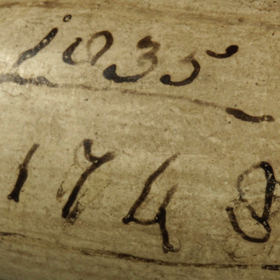 1035
1748